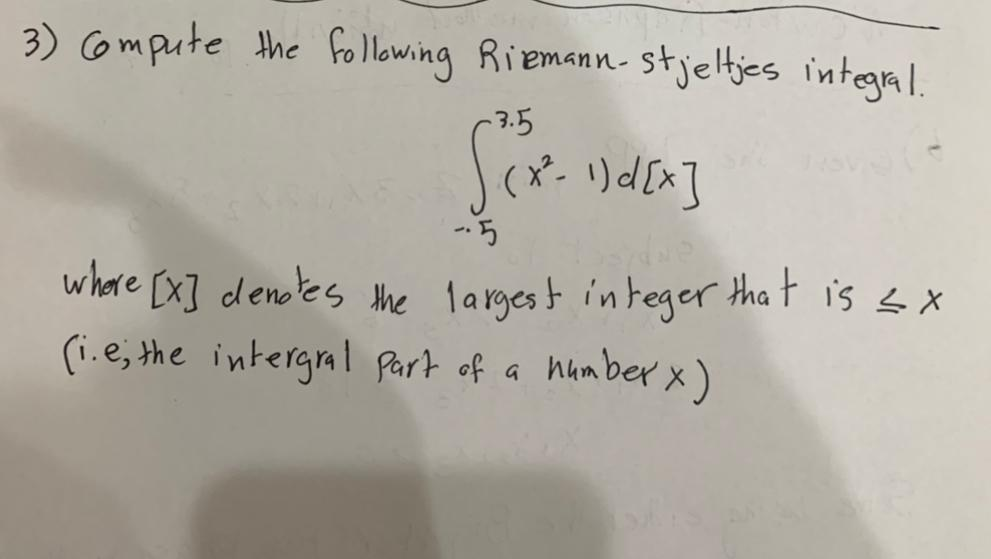 3) Compute the following Riemann-stjeltjes integral.
∫_{-.5}^{3.5} (x²- 1)d[x]
where [x] denotes the largest integer that is ≤ x
(i.e; the intergral Part of a number x)